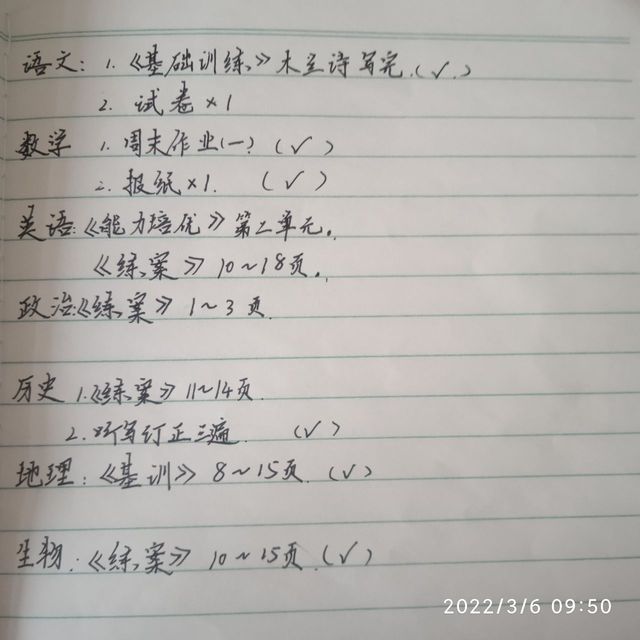 语文：1.《基础训练》木兰诗写完.(√.)
2. 试卷×1
数学 1. 周末作业(一) (√)
2. 报纸×1. (√)
英语:《能力培优》第二单元。
《练案》10~18页。
政治:《练案》1~3页.
历史 1.《练案》11~14页.
2. 听写订正三遍. (√)
地理：《基训》8~15页. (√)
生物：《练案》10~15页.(√)
2022/3/6 09:50